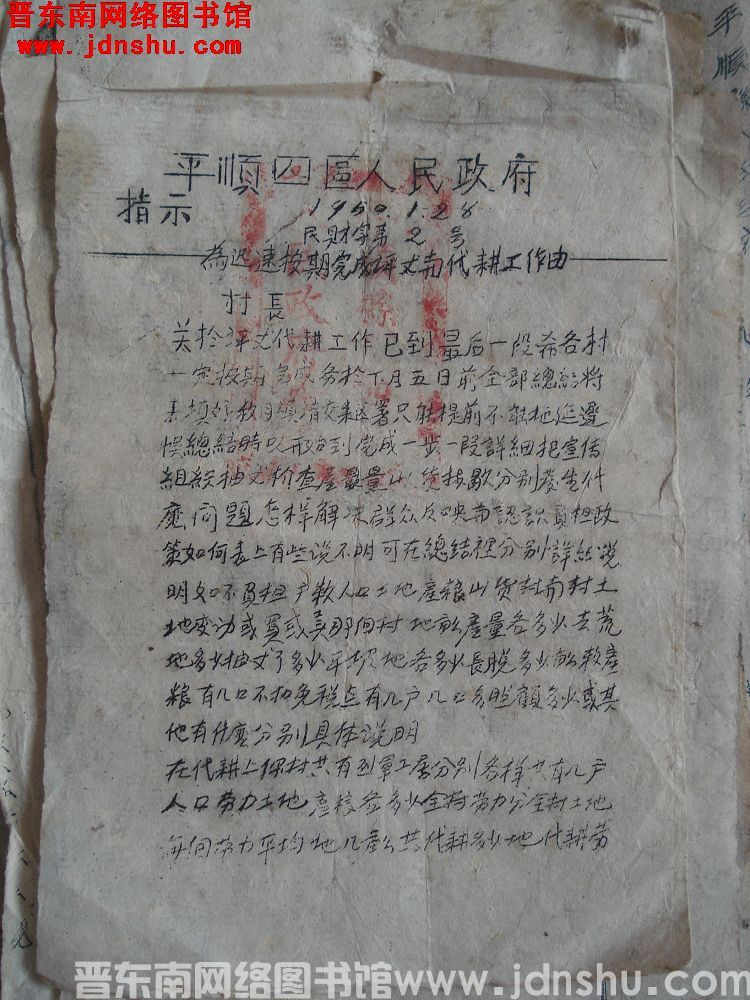 晋东南网络图书馆
www.jdnshu.com
平順四區人民政府
指示
1950.1.28
民財字第2号
為迅速按期完成評丈而代耕工作由
村長
关於评丈代耕工作已到最后一段希各村
一定按期完成务於下月五日前全部總結將
表填好数目填清交来区署只能提前不能拖延遲
惧總結時以开始到完成一步一段詳細把宣传
組织抽丈检查產量山货按畝分别發生什
麽问題怎样解决群众反映而認識負担政
策如何表上有些说不明可在總结裡分别詳細说
明如不負担户数人口土地產粮山货村南村土
地变动或買或卖那個村地畝產量各多少去荒
地多少抽丈了多少平坝地各多少長脱多少畝数產
粮有几口不扣免税点有几户几口多脱額多少或其
他有什麽分别具体说明
在代耕上你村共有烈軍工属分别各样共有几户
人口劳力土地產粮各多少全村劳力分全村土地
每個劳力平均地几畝共代耕多少地代耕劳
平順
晋东南网络图书馆www.jdnshu.com